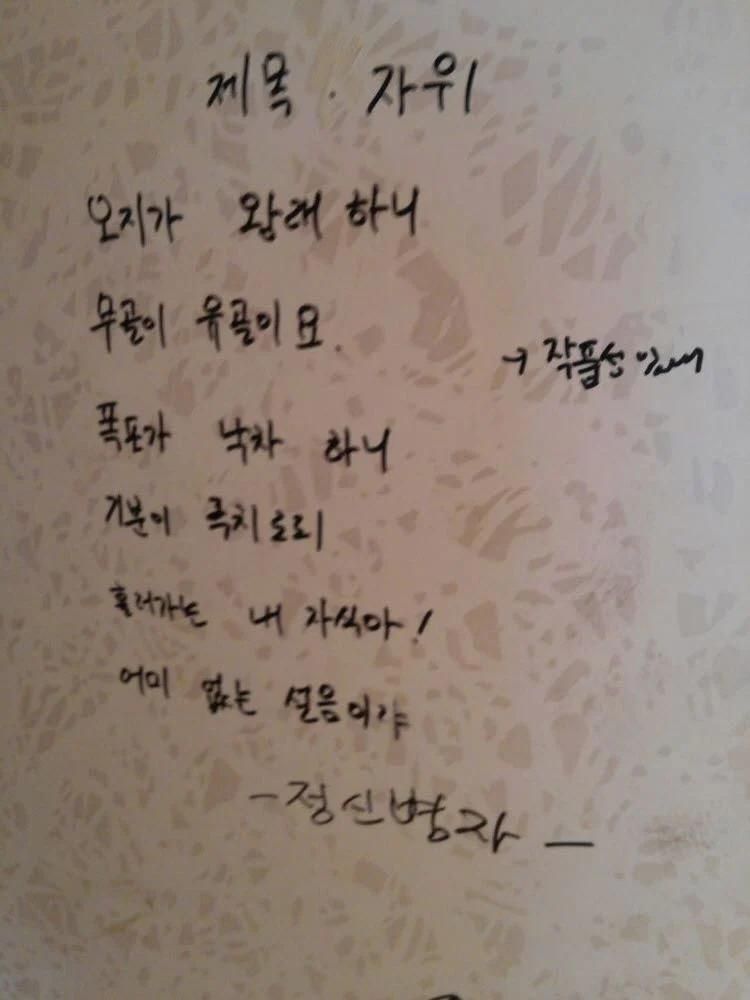 제목 · 자위
오지가 왕래 하니
무골이 유골이요.
→ 작품성 있네
폭포가 낙차 하니
기분이 극치로리
흘러가는 내 자식아!
어미 없는 설음이랴
-정신병자-